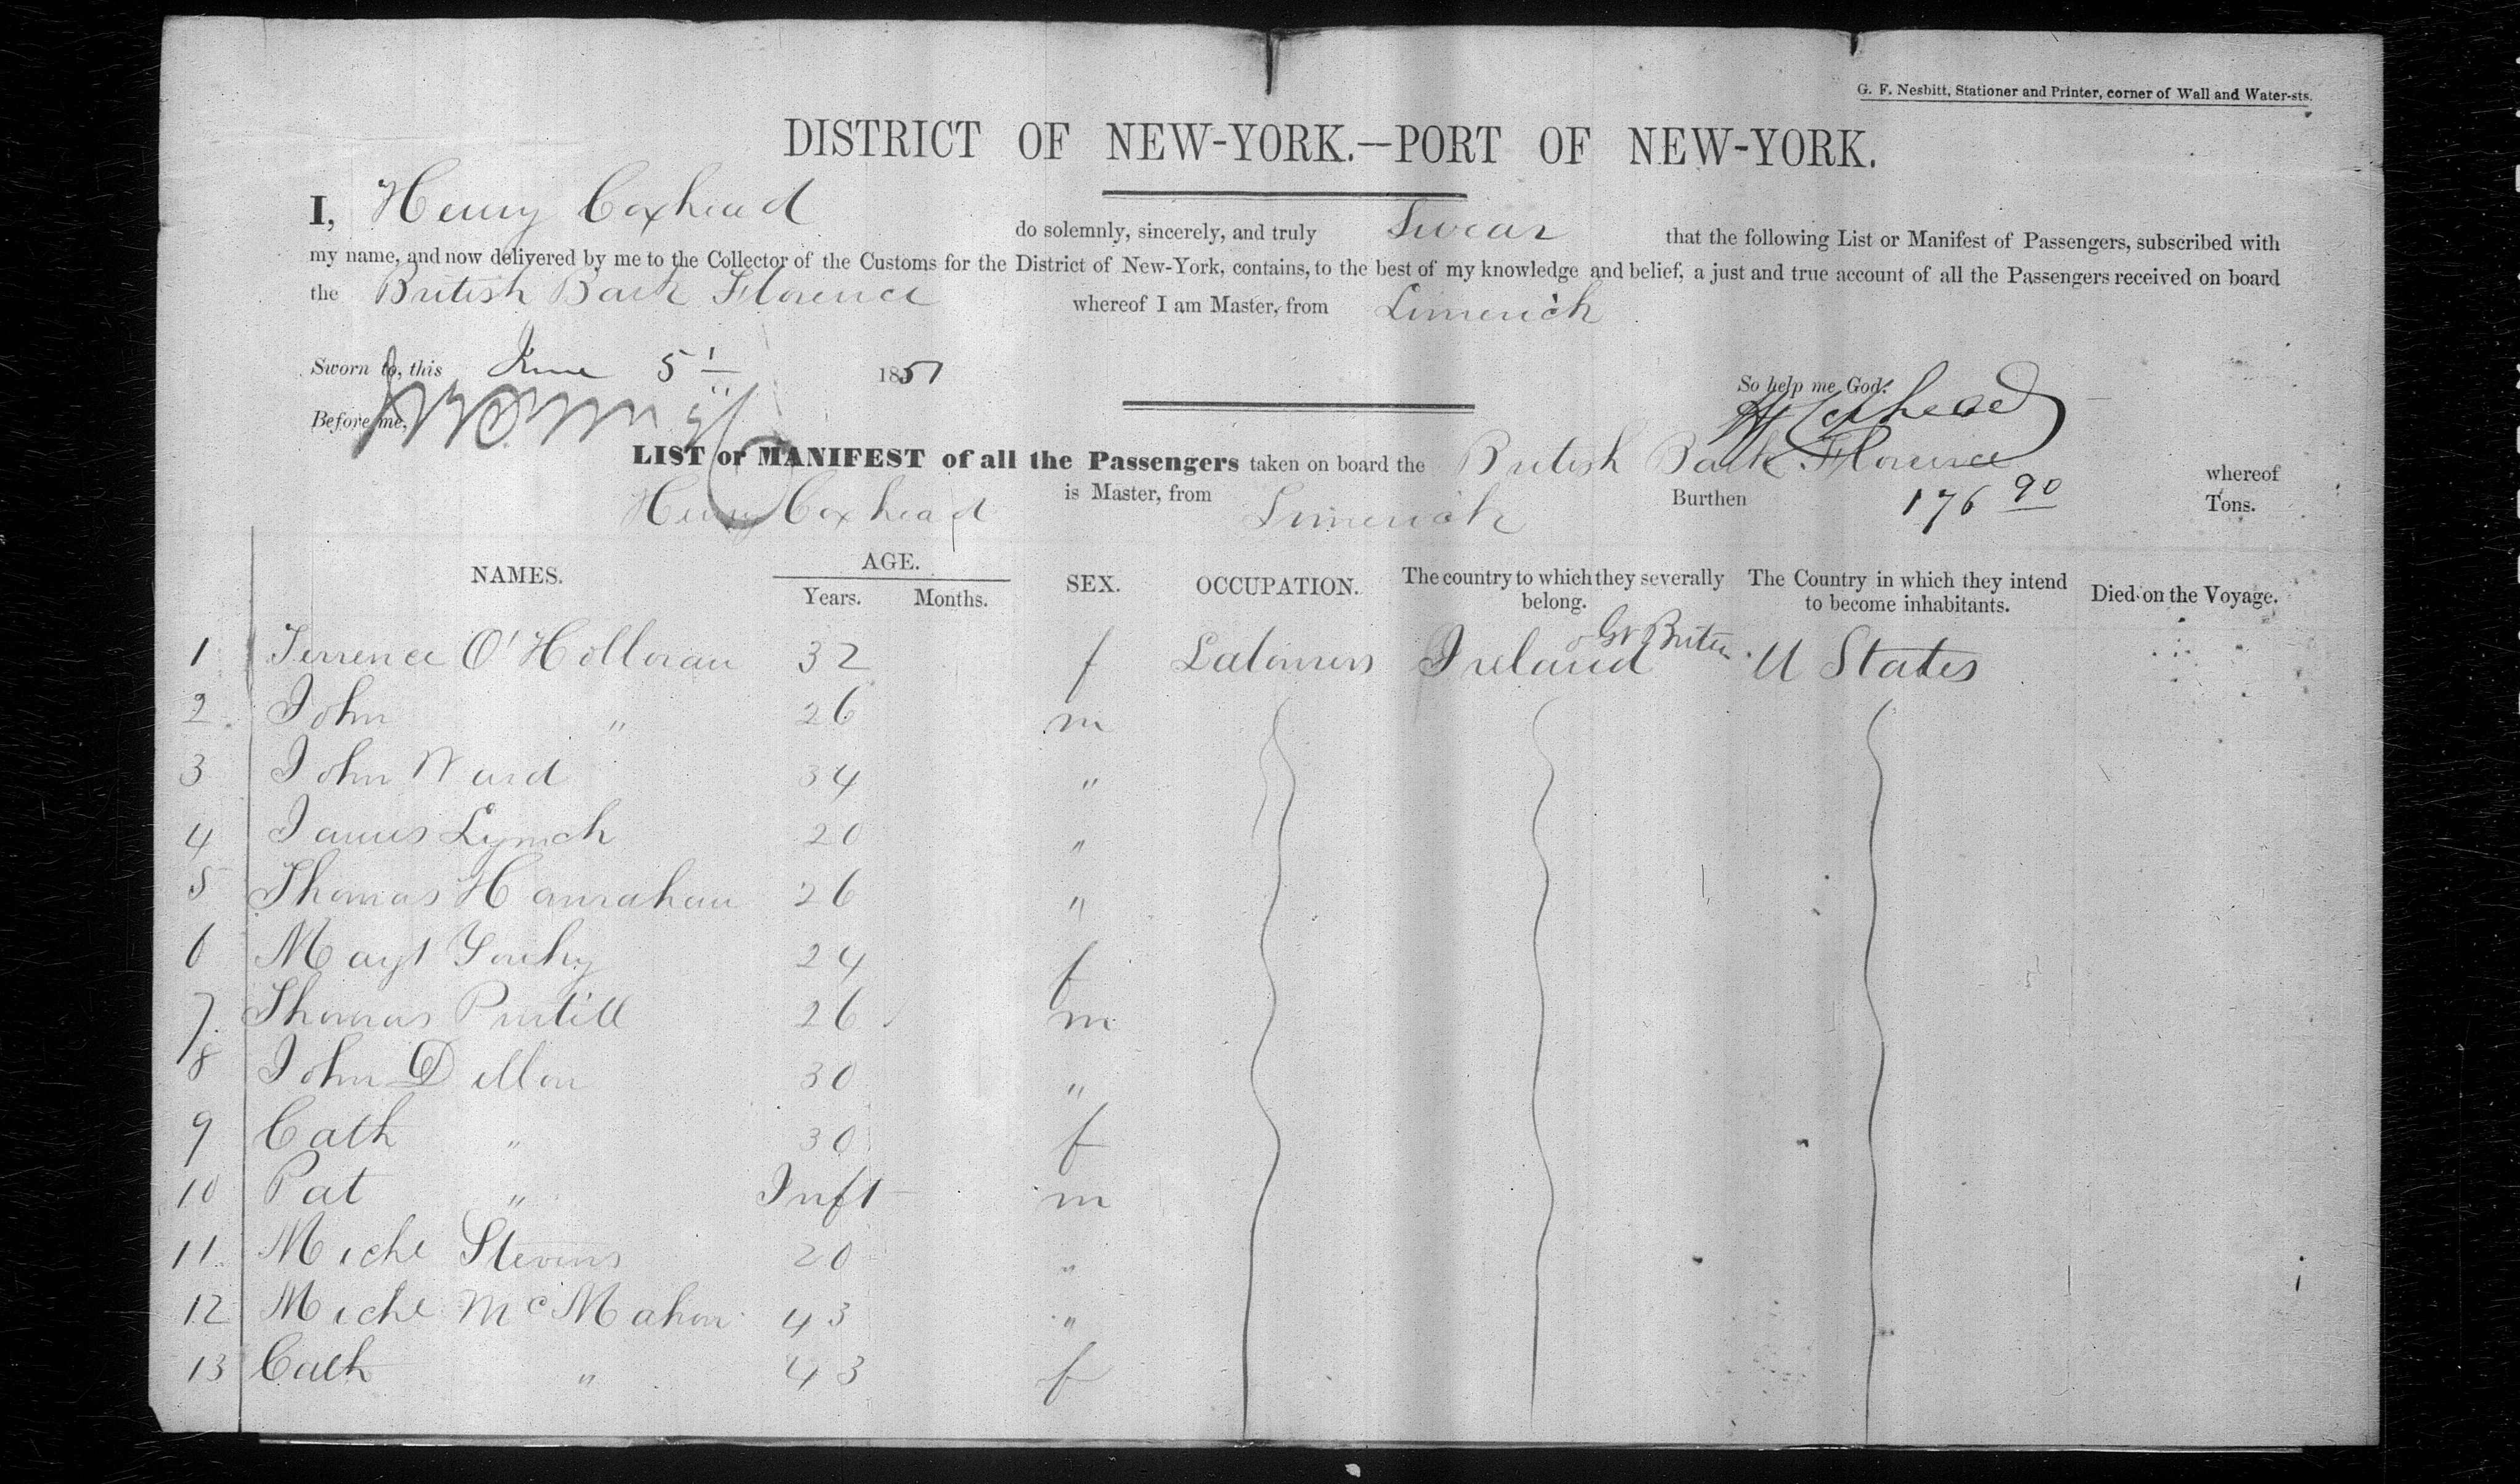 G. F. Nesbitt, Stationer and Printer, corner of Wall and Water-sts.
DISTRICT OF NEW-YORK.—PORT OF NEW-YORK.
I, Henry Coxhead do solemnly, sincerely, and truly Swear that the following List or Manifest of Passengers, subscribed with
my name, and now delivered by me to the Collector of the Customs for the District of New-York, contains, to the best of my knowledge and belief, a just and true account of all the Passengers received on board
the British Bark Florence whereof I am Master, from Limerick
Sworn to, this June 5 1851
So help me God.
H Coxhead
Before me,
LIST or MANIFEST of all the Passengers taken on board the British Bark Florence whereof
Henry Coxhead is Master, from Limerick Burthen 176 90 Tons.
NAMES. AGE. Years. Months. SEX. OCCUPATION. The country to which they severally belong. The Country in which they intend to become inhabitants. Died on the Voyage.
1 Terrence O'Holloran 32 f Labourers Ireland Gt Britn U States
2 John " 26 m
3 John Ward 34 "
4 James Lynch 20 "
5 Thomas Hanrahan 26 "
6 Magt 24 f
7 Thomas Purtill 26 m
8 John Dillon 30 "
9 Cath " 30 f
10 Pat " Inft m
11 Michl Stevens 20 "
12 Michl McMahon 43 "
13 Cath " 43 f